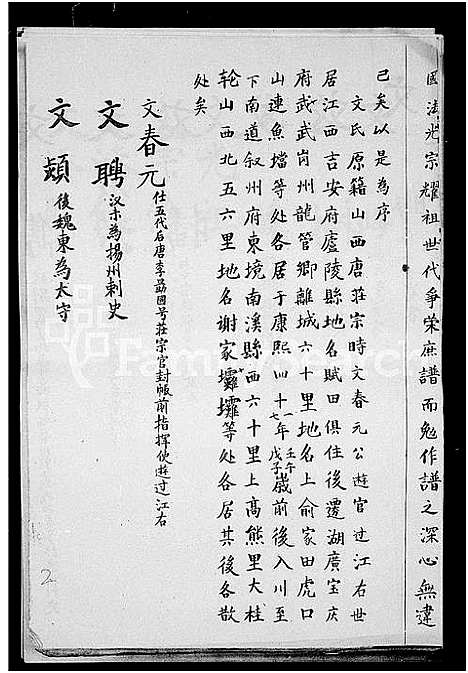 國法光宗耀祖世代爭榮庶譜而勉作譜之深心無違
己矣以是為序
文氏原籍山西唐莊宗時文春元公遊官过江右世
居江西吉安府廬陵縣地名賦田俱住後遷湖廣宝庆
府武武岗州龍管鄉離城六十里地名上俞家田虎口
山連魚壋等处各居于康熙四十一七年壬午戊子歲前後入川至
下南道叙州府東境南溪縣西六十里上高熊里大桂
轮山西北五六里地名谢家壩壩等处各居其後各散
处矣
文春元 仕五代后唐李勗国号莊宗官封帳前指挥使遊过江右
文聘 汉末為揚州刺史
文 後魏東為太守
2